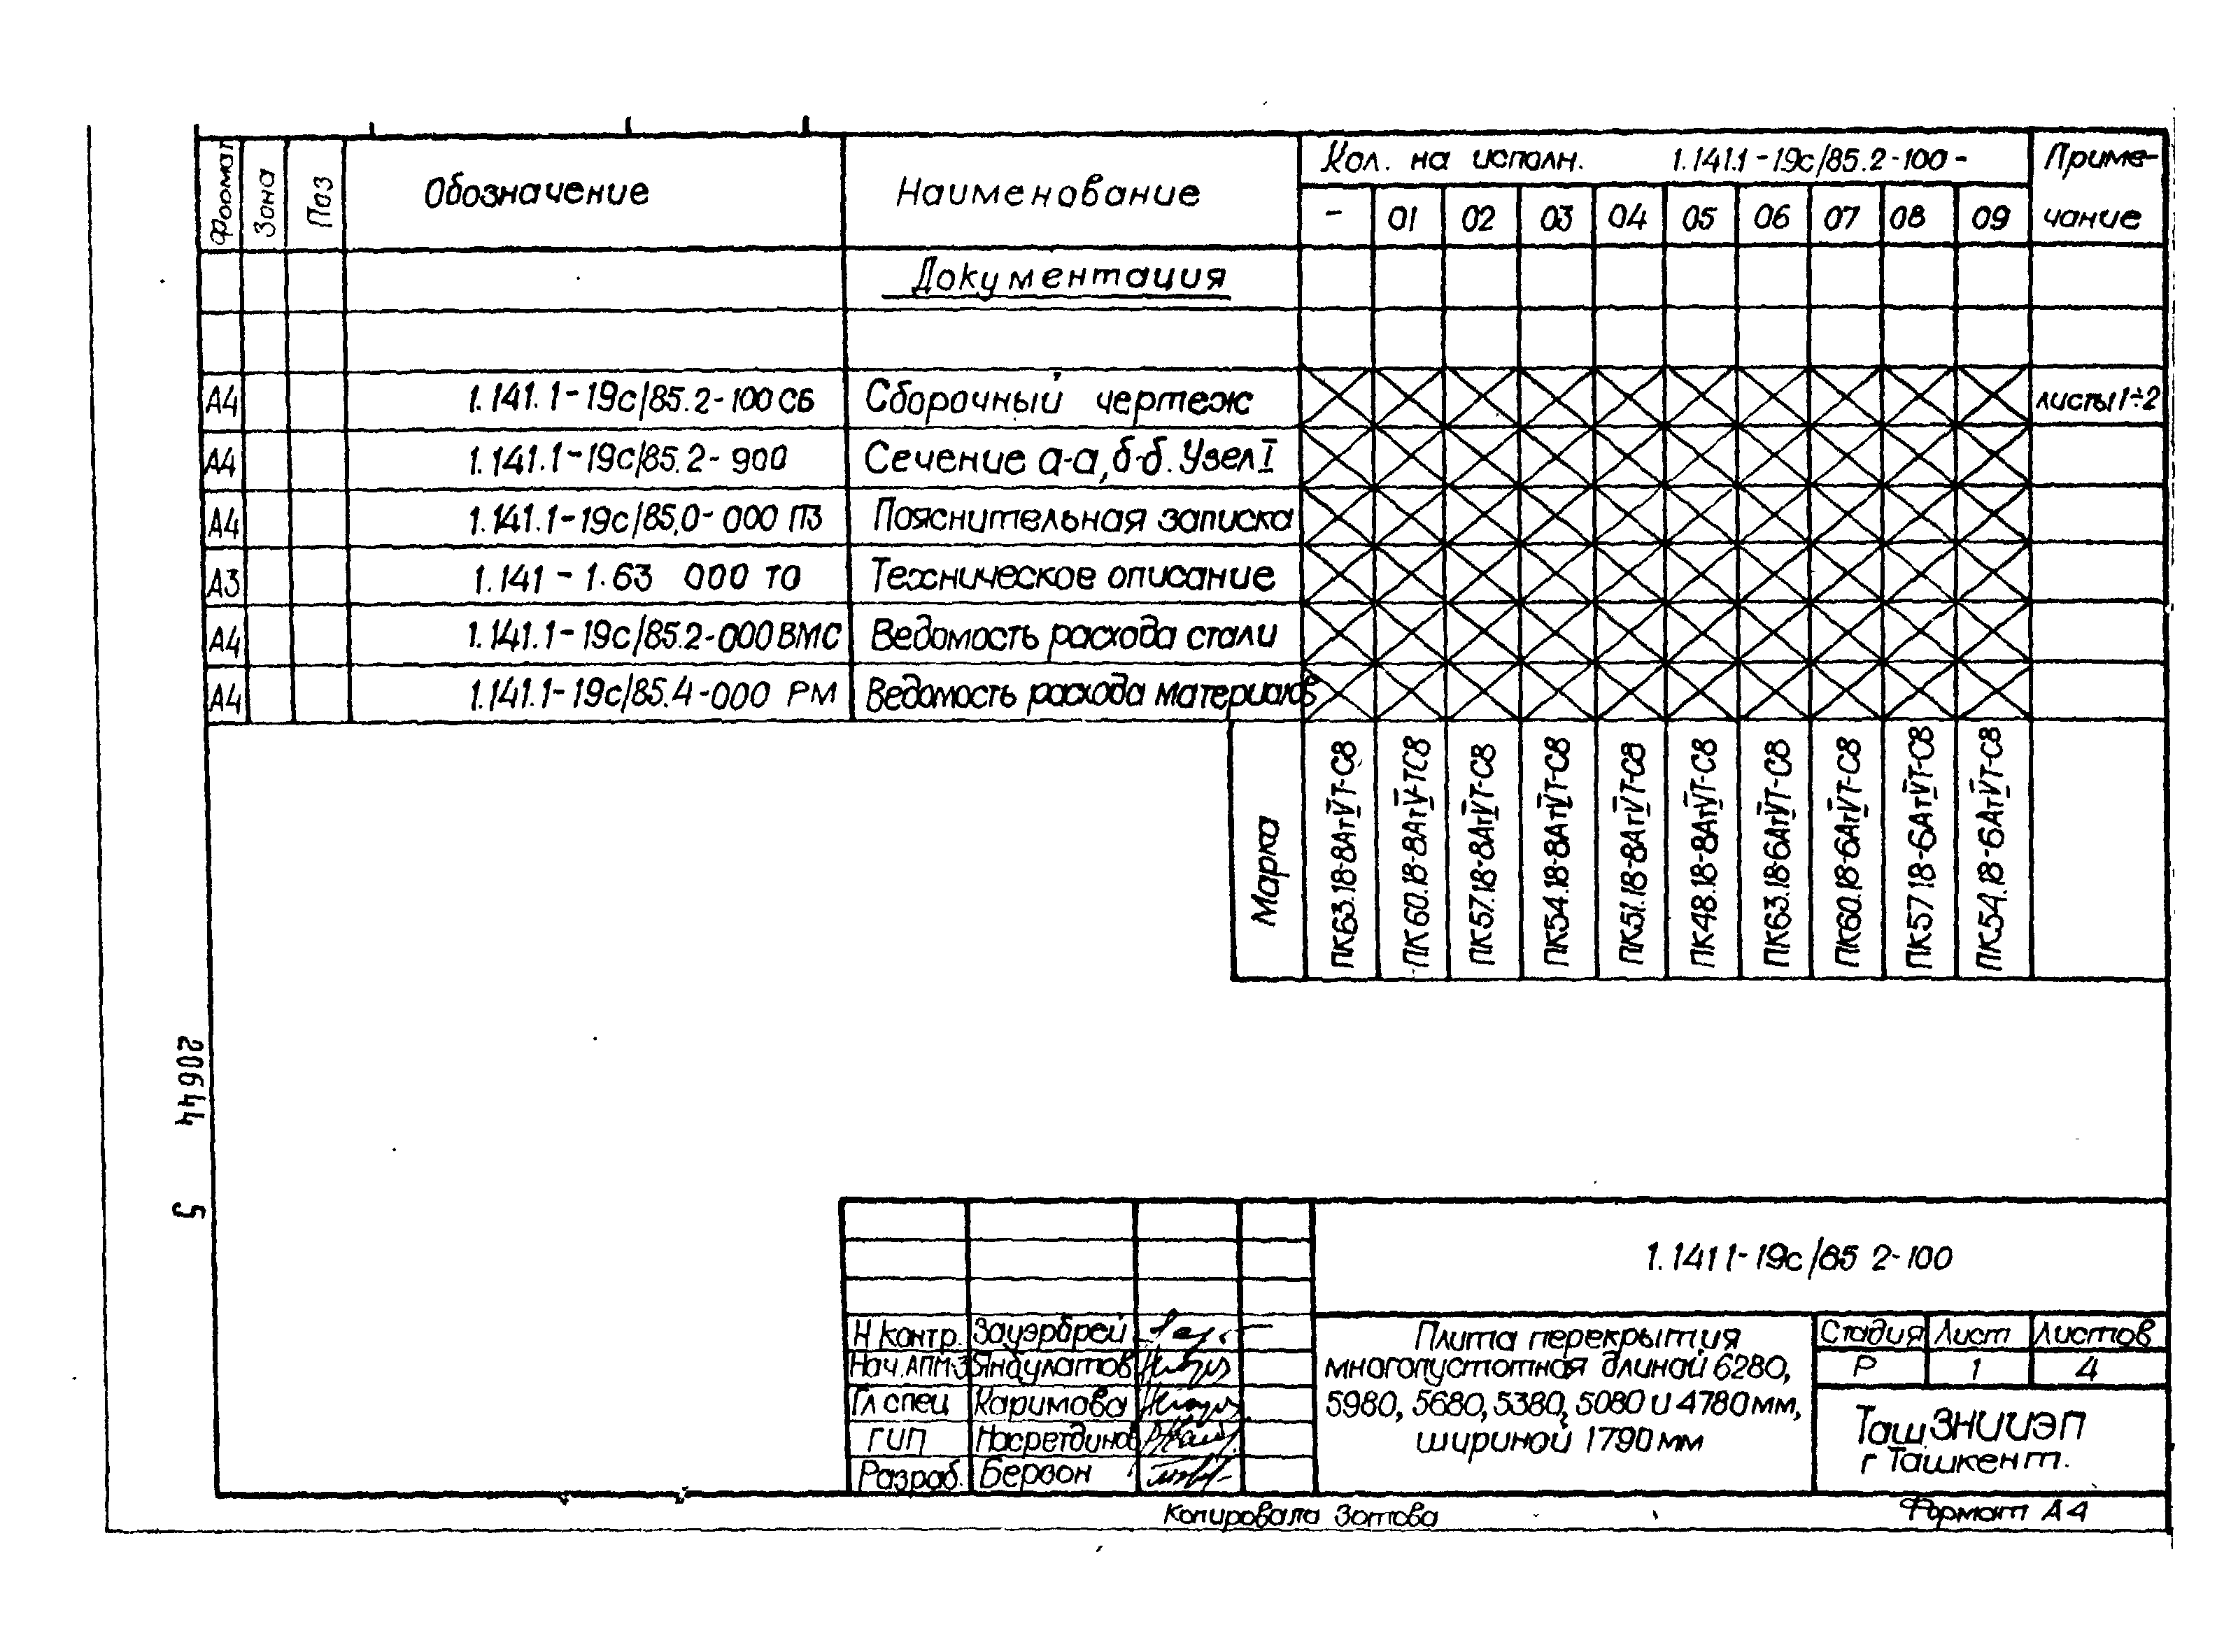 Формат Зона Поз Обозначение Наименование Кол. на исполн. 1.141.1-19с/85.2-100- Приме-
- 01 02 03 04 05 06 07 08 09 чание
Документация
А4 1.141.1-19с/85.2-100СБ Сборочный чертеж листы 1÷2
А4 1.141.1-19с/85.2-900 Сечение а-а, б-б. Узел I
А4 1.141.1-19с/85.0-000 ПЗ Пояснительная записка
А3 1.141-1.63 000 ТО Техническое описание
А4 1.141.1-19с/85.2-000ВМС Ведомость расхода стали
А4 1.141.1-19с/85.4-000 РМ Ведомость расхода материалов
Марка
ПК63.18-8АтVТ-С8
ПК60.18-8АтV-ТС8
ПК57.18-8АтVТ-С8
ПК54.18-8АтVТ-С8
ПК51.18-8АтVТ-С8
ПК48.18-8АтVТ-С8
ПК63.18-6АтVТ-С8
ПК60.18-6АтVТ-С8
ПК57 18-6АтVТ-С8
ПК54.18-6АтVТ-С8
20644 5
1.141 1-19с/85 2-100
Н контр. Зауэрбрей
Нач. АПМ-3 Яндулатов
Гл спец Каримова
ГИП Насретдинов
Разраб. Берсон
Плита перекрытия
многопустотная длиной 6280,
5980, 5680, 5380, 5080 и 4780мм,
шириной 1790мм
Стадия Лист Листов
Р 1 4
ТашЗНИИЭП
г Ташкент.
Копировала Зотова Формат А4